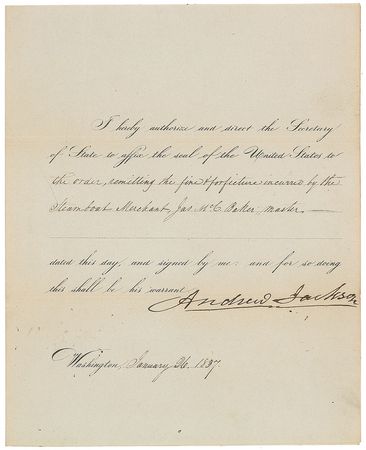 I hereby authorize and direct the Secretary
of State to affix the seal of the United States to
the order, remitting the fine & forfeiture incurred by the
Steamboat Merchant, Jas. McC. Baker, master.
dated this day, and signed by me: and for so doing
this shall be his warrant
Andrew Jackson
Washington, January 26. 1837.